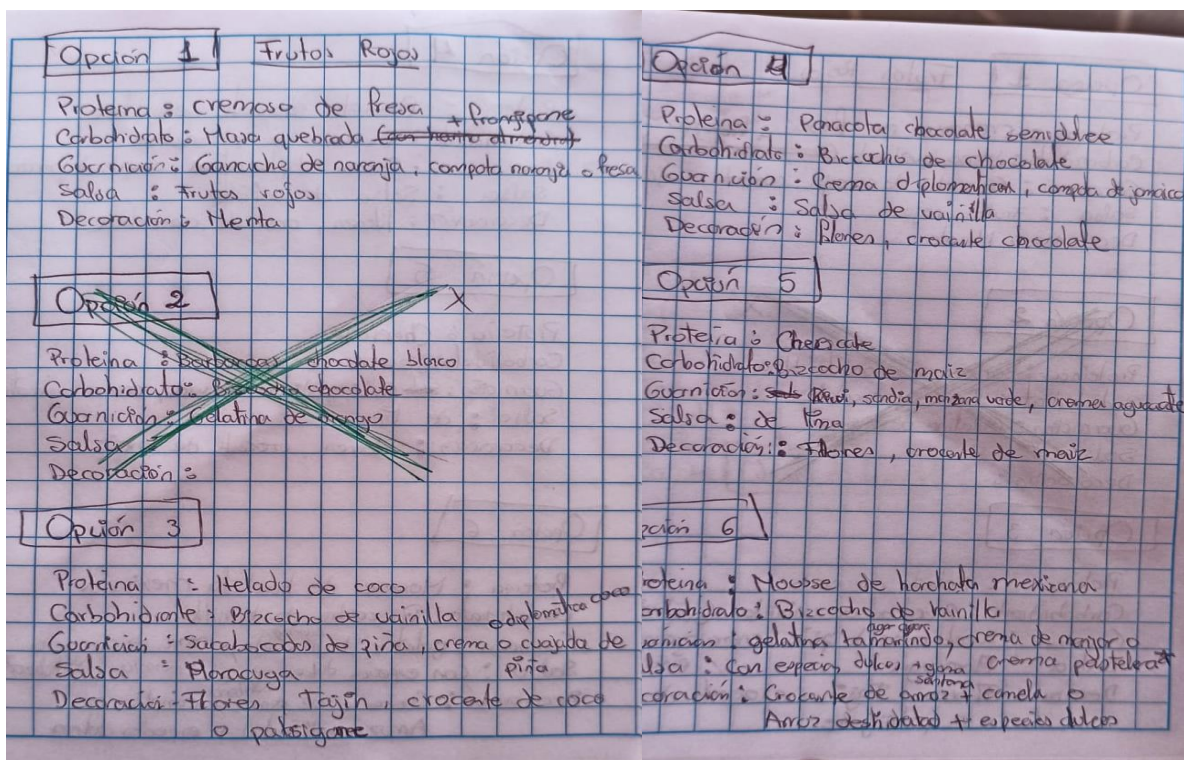 Opción 1 Frutos Rojos
Proteina : cremoso de fresa
+ frangipane
Carbohidrato : Masa quebrada
Guarnición : Ganache de naranja, compota naranja o fresa
Salsa : Frutos rojos
Decoración : Menta
Opción 2 X
Proteina : chocolate blanco
Carbohidrato : Bizcocho chocolate
Guarnición : Gelatina de mango
Salsa
Decoración :
Opción 3
Proteina : Helado de coco
Carbohidrante : Bizcocho de vainilla o diplomatica coco
Guarnicion : sacabocados de piña, crema o cuajada de
piña
Salsa : Maracuya
Decoració : Flores Tajín, crocante de coco
o
Opción 4
Proteina : Panacota chocolate semidulce
Carbohidrato : Bizcocho de chocolate
Guarnición : Crema diplomatica, compota de jamaica
Salsa : Salsa de vainilla
Decoración : Flores, crocante chocolate
Opción 5
Proteina : Cheescake
Carbohidrato : Bizcocho de maiz
Guarnición : Kiwi, sandia, manzana verde, crema aguacate
Salsa : de lima
Decoración : Flores, crocante de maiz
pción 6
roteina : Mousse de horchata mexicana
arbohidrato : Bizcocho de vainilla
agar agar
uarnicion : gelatina tamarindo, crema de mango o
crema pastelera
alsa : Con especias dulces + goma
santana
coración : Crocante de arroz + canela o
Arroz deshidatado + especies dulces